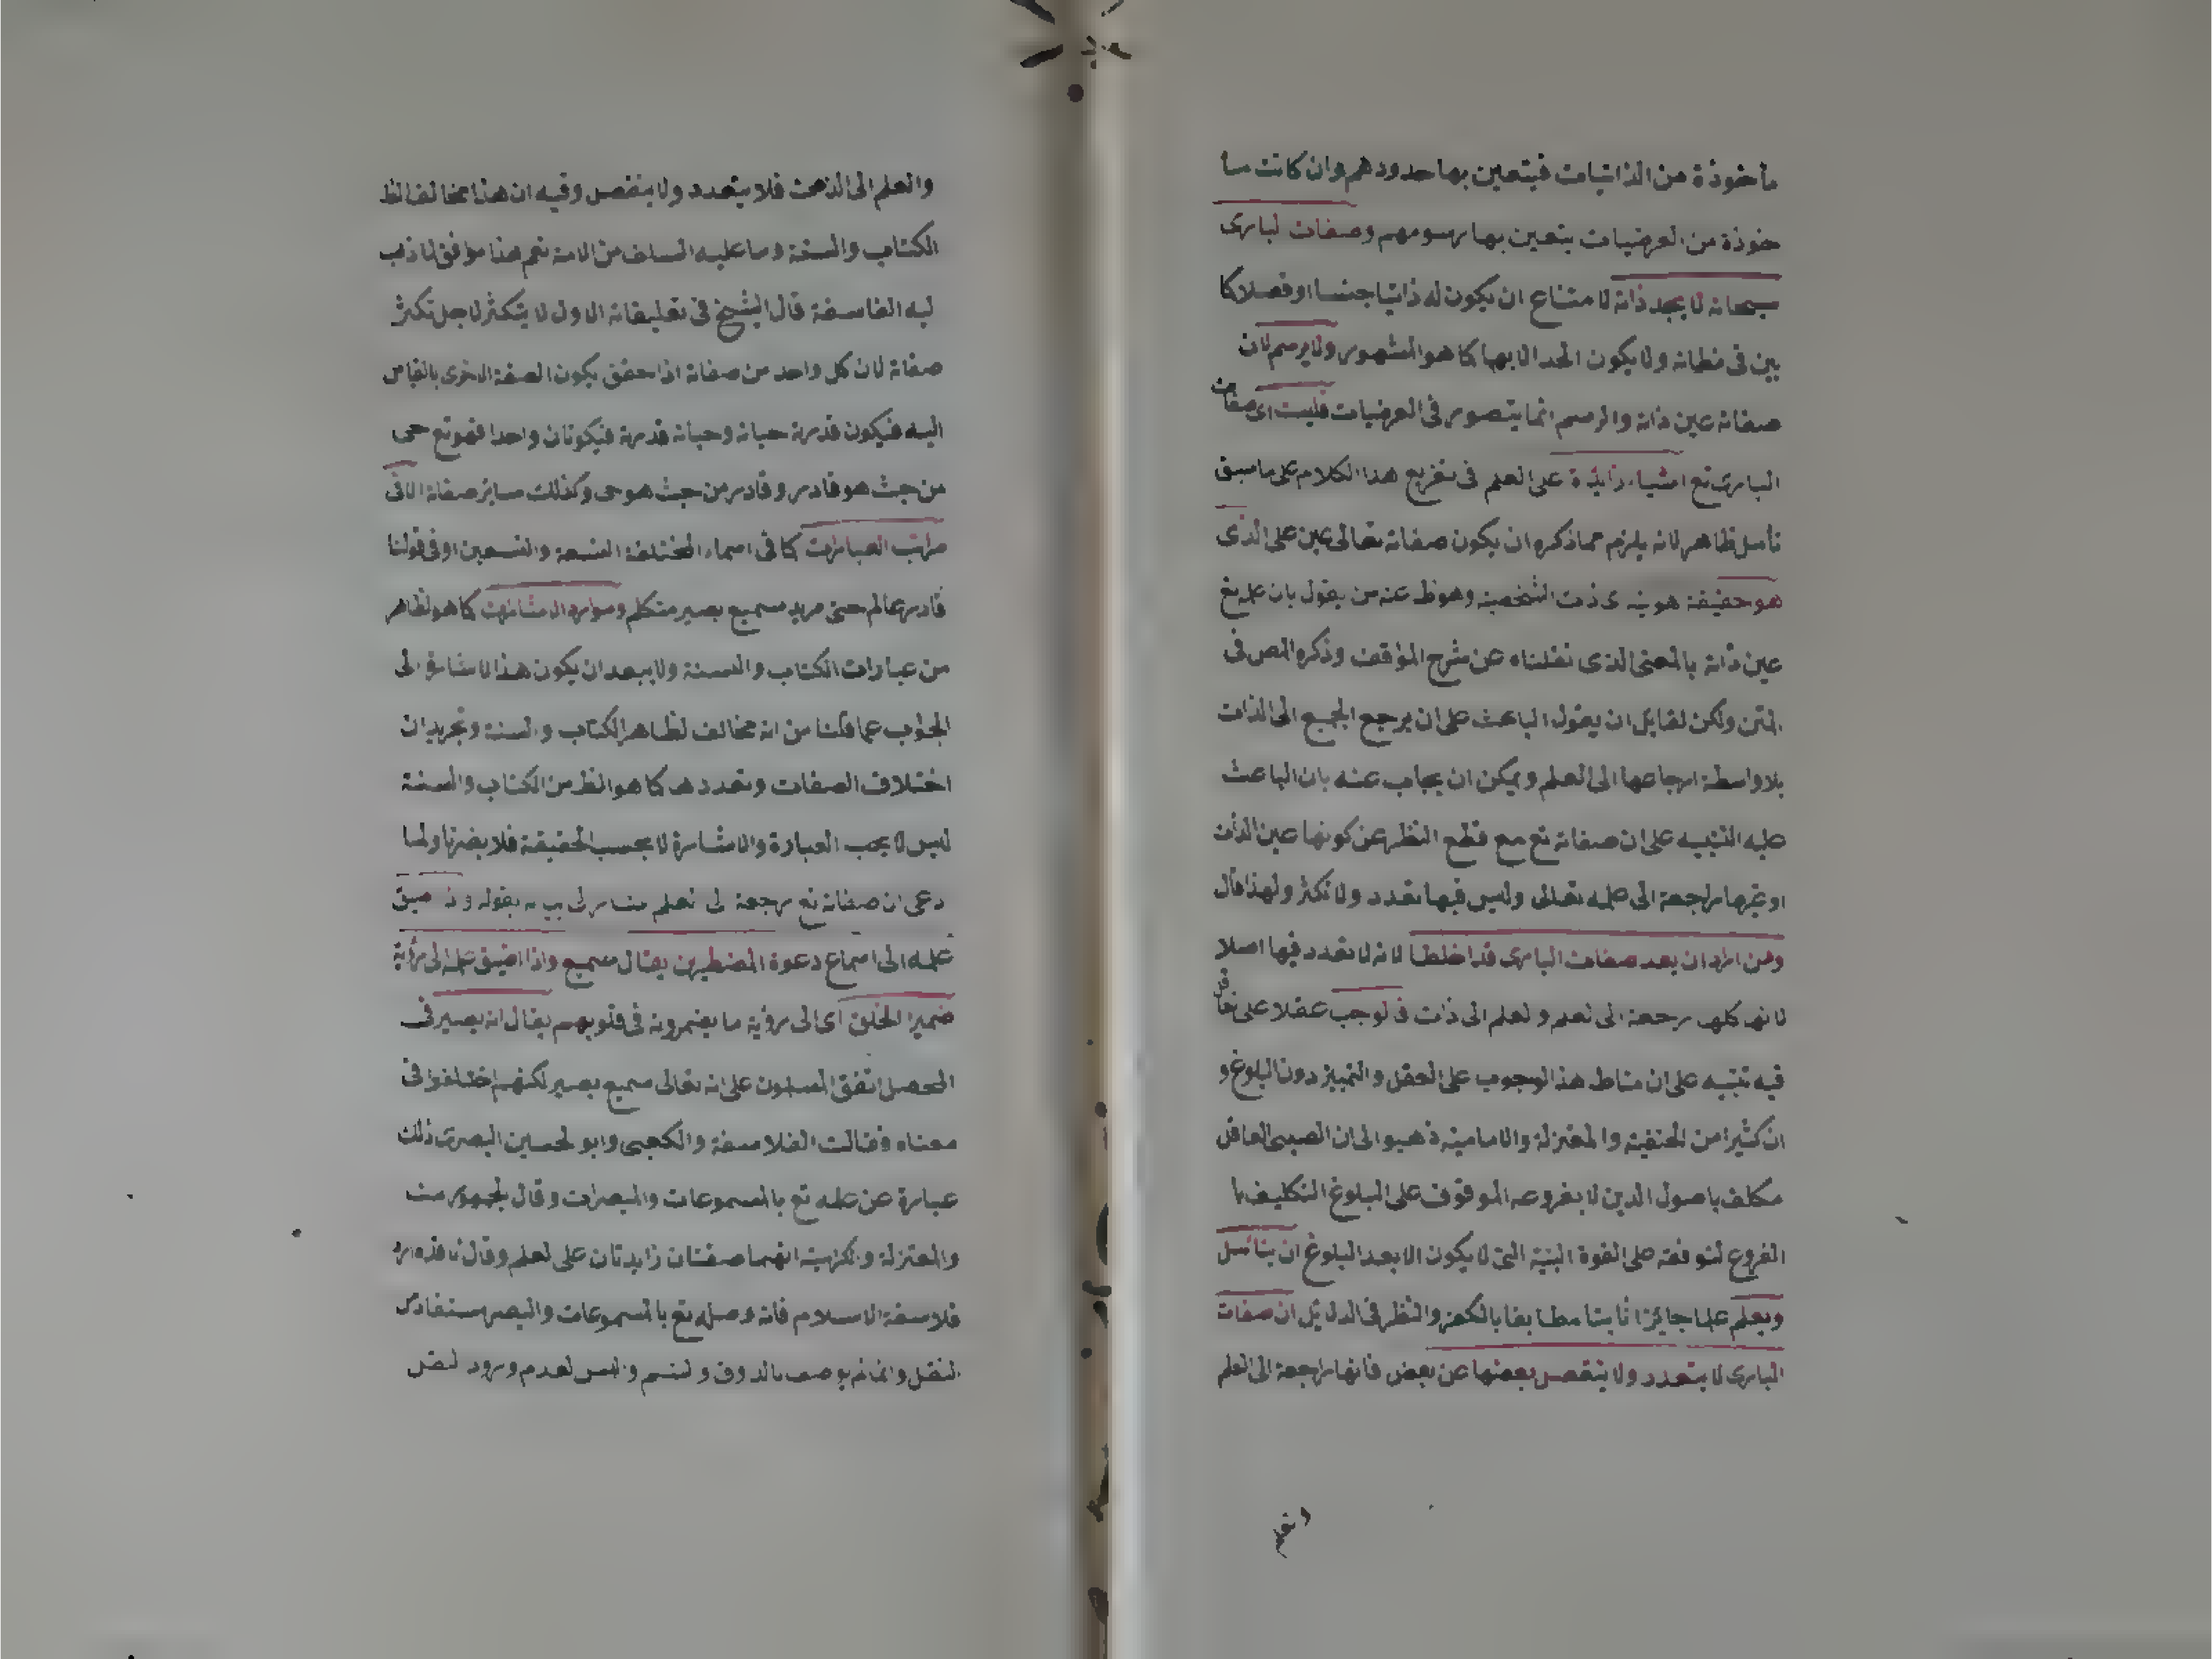 مأخوذة من الذاتيات فيتعين بها حدودهم وان كانت ما
خوذة من العرضيات يتعين بها رسومهم وصفات البارى
سبحانه لا يحد ذاته لامتناع ان يكون له ذاتيا جنسا او فصلا كما
بين فى مظانه ولا يكون الحد الا بها كما هو المشهور ولا يرسم لان
صفاته عين ذاته والرسم انما يتصور فى العرضيات فليست اى صفات
البارى تع اشياء زايدة على العلم فى تفريع هذا الكلام على ما سبق
تأمل ظاهر لانه يلزم مما ذكره ان يكون صفاته تعالى عين على الذى
هو حقيقة هويته الشخصية وهو ظ عند من يقول بان علمه تع
عين ذاته بالمعنى الذى نقلناه عن شرح المواقف وذكره المص فى
المتن ولكن لقايل ان يقول الباعث على ان يرجع الجميع الى الذات
بلا واسطة ارجاعها الى العلم ويمكن ان يجاب عنه بان الباعث
عليه التنبيه على ان صفاته تع مع قطع النظر عن كونها عين الذات
او غيرها راجعة الى علمه تعالى وليس فيها تعدد ولا تكثر ولهذا قال
ومن اراد ان يعد صفات البارى فقد اخطا لانه لا تعدد فيها اصلا
لانها كلها راجعة الى العلم والعلم الى ذات فالوجب عقلا على العاقل
فيه تنبيه على ان مناط هذا الوجوب على العقل والتمييز دون البلوغ و
ان كثيرا من الحنفية والمعتزلة والامامية ذهبوا الى ان الصبى العاقل
مكلف باصول الدين لا بفروعه الموقوف على البلوغ التكليف بها
الفروع لتوقفه على القوة البنية التى لا يكون الا بعد البلوغ ان يتأمل
ويعلم علما جائزا ثابتا مطابقا بالكفر والنظر فى الدلايل ان صفات
البارى لا يتعدد ولا ينفصل بعضها عن بعض فانها راجعة الى العلم
والعلم
والعلم الى الذات فلا يتعدد ولا ينفصل وفيه ان هذا مخالف لظ
الكتاب والسنة وما عليه السلف من الامة نعم هذا موافق لما ذهب
ليه الفلاسفة قال الشيخ فى تعليقاته الاول لا يتكثر لاجل تكثر
صفاته لان كل واحد من صفاته اذا حقق يكون الصفة الاخرى بالقياس
اليه فيكون قدرته حياته وحياته قدرته فيكونان واحدا فهو تع حى
من حيث هو قادر وقادر من حيث هو حى وكذلك ساير صفاته الا فى
مراتب العبارات كما فى اسماء المختلفة التسعة والتسعين او فى قولنا
قادر عالم حى مريد سميع بصير متكلم وموارد الاشارات كما هو الظاهر
من عبارات الكتاب والسنة ولا يبعد ان يكون هذا لاشارة الى
الجواب عما قلنا من انه مخالف لظاهر الكتاب والسنة وتحريره ان
اختلاف الصفات وتعددها كما هو الظ من الكتاب والسنة
ليس الا بحب العبارة والاشارة لا بحسب الحقيقة فلا يضرنا ولما
دعى ان صفاته تع راجعة الى العلم اشار الى بيانه بقوله واذا اضيف
علمه الى اسماع دعوة المضطرين يقال سميع واذا اضيف علمه الى رؤية
ضمير الخلق اى الى رؤية ما يضمرونه فى قلوبهم يقال انه بصير فى
المحصل اتفق المسلمون على انه تعالى سميع بصير لكنهم اختلفوا فى
معناه فقالت الفلاسفة والكعبى وابو الحسين البصرى ذلك
عبارة عن علمه تع بالمسموعات والمبصرات وقال الجمهور منا
والمعتزلة والكرامية انهما صفتان زايدتان على العلم وقال ناقده اراد
فلاسفة الاسلام فانه وصله تع بالمسموعات والبصر مستفاد من
النقل وانما لم يوصف بالذوق والشم واللمس لعدم ورود النقل